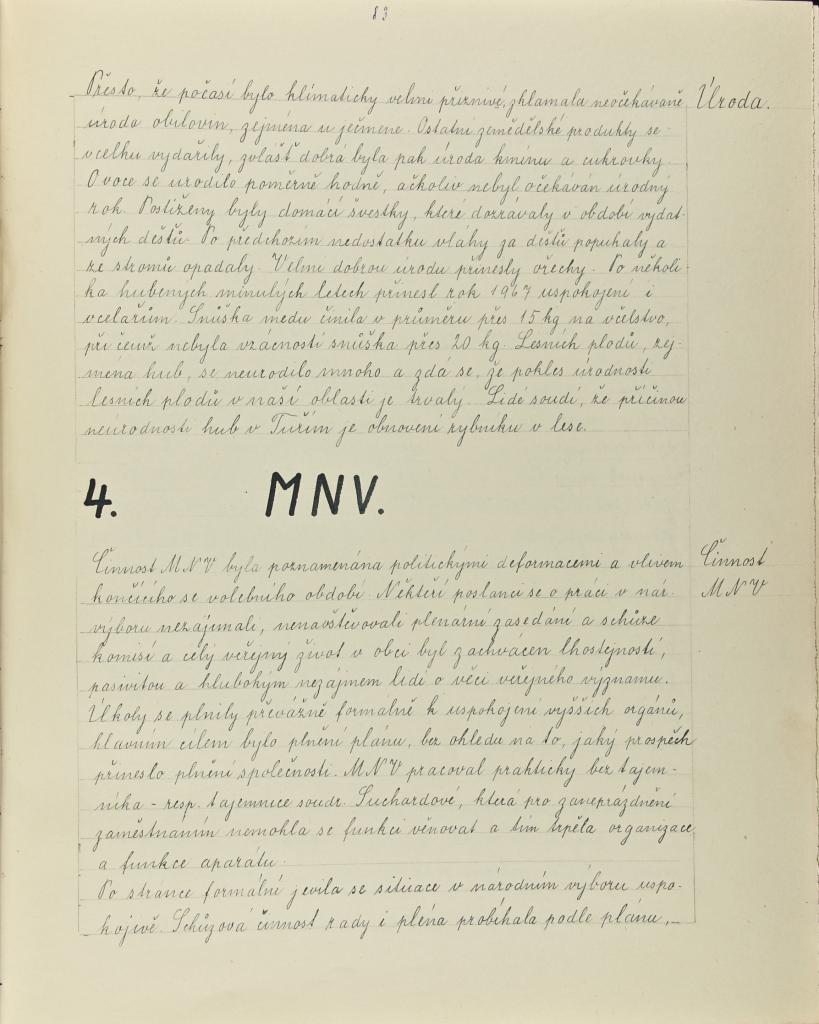 83
Přesto, že počasí bylo klimaticky velmi příznivé, zklamala neočekávaně
Úroda.
úroda obilovin, zejména u ječmene. Ostatní zemědělské produkty se
vcelku vydařily, zvlášť dobrá byla pak úroda kmínu a cukrovky.
Ovoce se urodilo poměrně hodně, ačkoliv nebyl očekáván úrodný
rok. Postiženy byly domácí švestky, které dozrávaly v období vydat-
ných dešťů. Po předchozím nedostatku vláhy za dešťů popukaly a
ze stromů opadaly. Velmi dobrou úrodu přinesly ořechy. Po několi-
ka hubených minulých letech přinesl rok 1967 uspokojení i
včelařům. Snůška medu činila v průměru přes 15 kg na včelstvo,
při čemž nebyla vzácností snůška přes 20 kg. Lesních plodů, zej-
ména hub, se neurodilo mnoho a zdá se, že pokles úrodnosti
lesních plodů v naší oblasti je trvalý. Lidé soudí, že příčinou
neúrodnosti hub v Tuřím je obnovení rybníku v lese.
4. MNV.
Činnost MNV byla poznamenána politickými deformacemi a vlivem
Činnost
končícího se volebního období. Někteří poslanci se o práci v nár.
MNV
výboru nezajímali, nenavštěvovali plenární zasedání a schůze
komisí a celý veřejný život v obci byl zachvácen lhostejností,
pasivitou a hlubokým nezájmem lidí o věci veřejného významu.
Úkoly se plnily převážně formálně k uspokojení vyšších orgánů,
hlavním cílem bylo plnění plánu, bez ohledu na to, jaký prospěch
přineslo plnění společnosti. MNV pracoval prakticky bez tajem-
níka - resp. tajemnice soudr. Suchardové, která pro zaneprázdnění
zaměstnaním nemohla se funkci věnovat a tím trpěla organizace
a funkce aparátu.
Po stránce formální jevila se situace v národním výboru uspo-
kojivě. Schůzová činnost rady i pléna probíhala podle plánu,